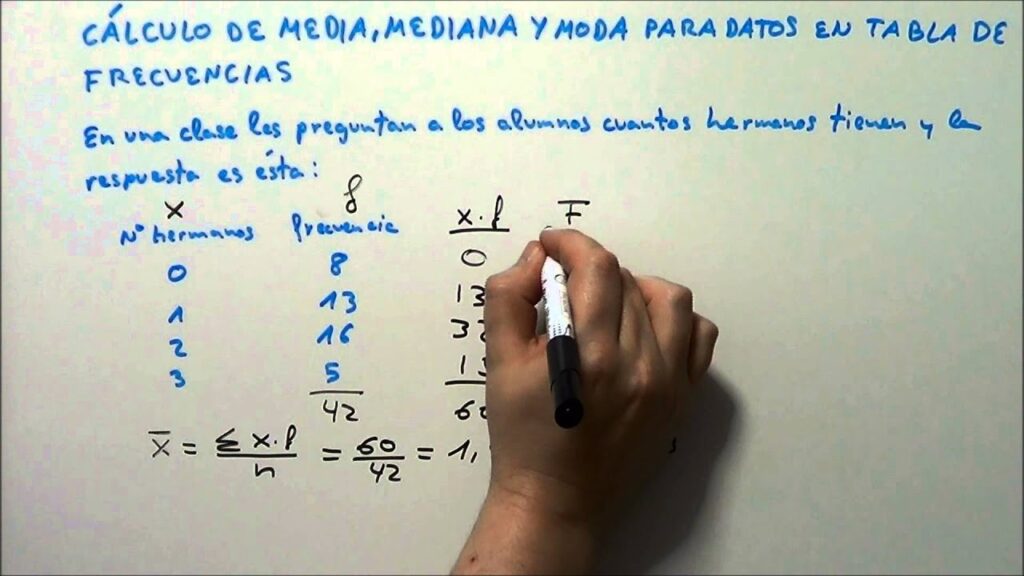 CÁLCULO DE MEDIA, MEDIANA Y MODA PARA DATOS EN TABLA DE
FRECUENCIAS
En una clase les preguntan a los alumnos cuantos hermanos tienen y la
respuesta es ésta:
x f x.f F
Nº hermanos frecuencia
0 8 0
1 13 13
2 16
3 5
42
x̄ = Σ x.f / n = 60 / 42 = 1,